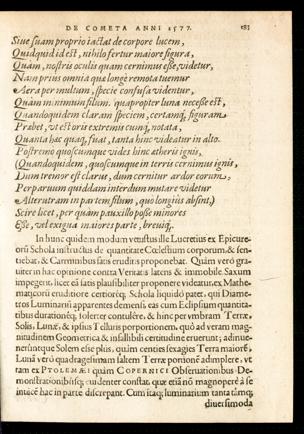 DE COMETA ANNI 1577. 183
Siue suam proprio iactat de corpore lucem,
Quidquid id est, nihilo fertur maiore figura,
Quàm, nostris oculis quam cernimus esse, videtur,
Nam prius omnia quæ longè remota tuemur
Aëra per multum, specie confusa videntur,
Quàm minimum filum. quapropter luna necesse est,
Quandoquidem claram speciem, certamq́; figuram
Præbet, vt est oris extremis cunq́; notata,
Quanta hæc quaq́; fuat, tanta hinc videatur in alto.
Postremo quoscunque vides hinc ætheris ignis,
(Quandoquidem, quoscunque in terris cernimus ignis,
Dum tremor est clarus, dum cernitur ardor eorum,
Perparuum quiddam interdum mutare videtur
Alterutram in partem filum, quo longius absint,)
Scire licet, per quàm pauxillo posse minores
Esse, vel exigua maiores parte, breuiq́;.
In hunc quidem modum vetustus ille Lucretius ex Epicure-
orũ Schola instructus de quantitate Cœlestium corporum, & sen-
tiebat, & Carminibus satis eruditis proponebat. Quàm verò gra-
uiter in hac opinione contra Veritatis latens & immobile Saxum
impegerit, licet eã satis plausibiliter proponere videatur, ex Mathe-
maticorũ eruditiore certioriq́; Schola liquidò patet, qui Diame-
tros Luminariũ apparentes demensi, eas cum Eclipsium quantita-
tibus durationéq́; solerter contulêre, & hinc per vmbram Terræ,
Solis, Lunæ, & ipsius Telluris porportionem, quò ad veram mag-
nitudinem Geometrica & infallibili certitudine eruerunt; adinue-
nerúntque Solem esse plus, quàm centies sexagies Terra maiorẽ,
Lunã verò quadragesimam saltem Terræ portionẽ adimplere, vt
tam ex PTOLEMÆI quàm COPERNICI Obseruationibus De-
monstrationibúsq; euidenter constat, quæ etiã nõ magnopere à se
inuicẽ hac in parte discrepant. Cum itaq; luminarium tanta tamq́;
diuersimoda